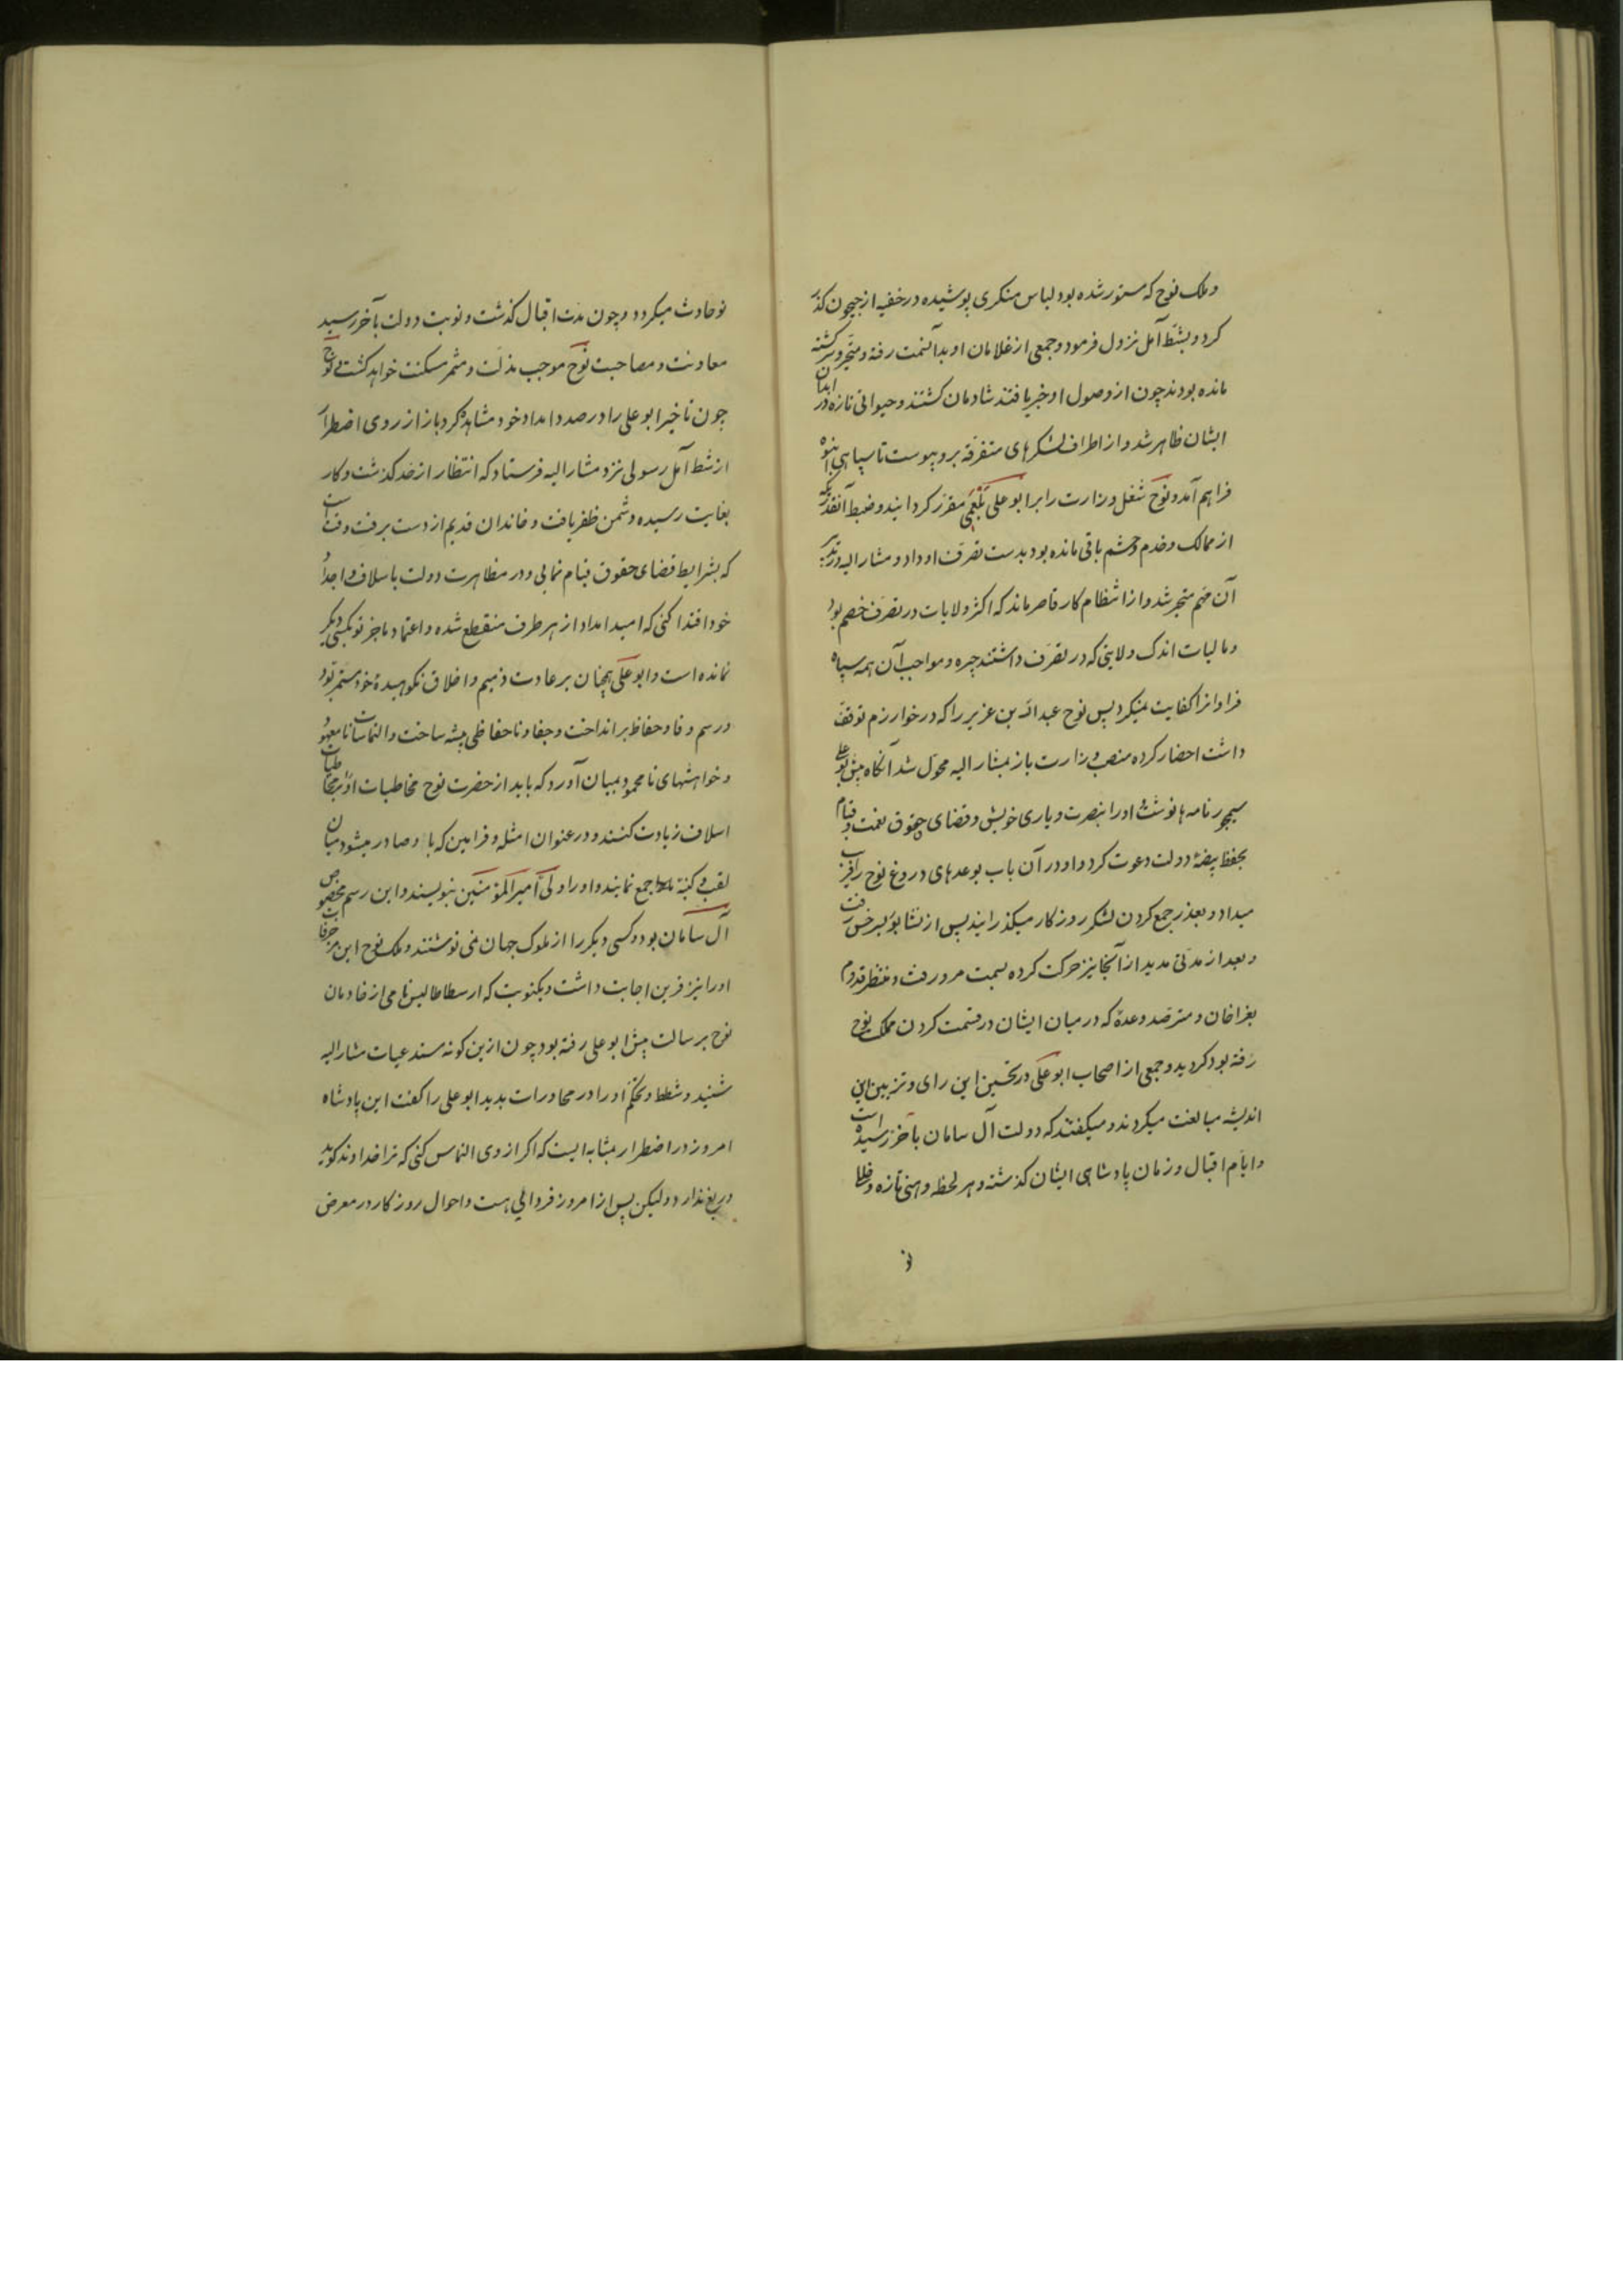 وملک نوح که مستور شده بود لباس منکری پوشیده در خفیه از جیحون گذر
کرد و بشط آمل نزول فرمود و جمعی از غلامان او بدانسمت رفته و متحیر و سرگشته
مانده بودند چون از وصول او خبر یافتند شادمان گشتند و حیوانی تازه در ابدان
ایشان ظاهر شد و از اطراف لشکرهای متفرقه برو پیوست تا سپاهی انبوه
فراهم آمد و نوح شغل وزارت را بر ابو علی بلعمی مقرر گردانید و ضبط آنقدر که
از ممالک و خدم و حشم باقی مانده بود بدست تصرف او داد و مشارالیه در تدبیر
آن مهم متحیر شد و از انتظام کار قاصر ماند که اکثر ولایات در تصرف خصم بود
و مالیات اندک ولایتی که در تصرف داشتند جیره و مواجب آن همه سپاه
فراوانرا کفایت نمیکرد پس نوح عبدالله بن عزیر را که در خوارزم توقف
داشت احضار کرده منصب وزارت باز بمشار الیه محول شد آنکاه پیش ابو علی
سیمجور نامه ها نوشته او را بنصرت و یاری خویش و قضای حقوق نعمت و قیام
بحفظ بیضهٔ دولت دعوت کرد و او در آن باب بوعدهای دروغ نوح را فریب
میداد و بعذر جمع کردن لشکر روزکار میکذرانید پس از نشابور بسرخس رفت
و بعد از مدتی مدید از آنجا نیز حرکت کرده بسمت مرو رفت و منتظر قدوم
بغراخان و مترصد وعدهٔ که در میان ایشان در قسمت کردن ملک نوح
رفته بود کردید و جمعی از اصحاب ابو علی در تحسین این رای و تزیین این
اندیشه مبالغت میکردند و میکفتند که دولت آل سامان بآخر رسیده است
و ایام اقبال و زمان پادشاهی ایشان کذشته و هر لحظه وهنی تازه و خللی
نو
نو حادث میکردد و چون مدت اقبال کذشت و نوبت دولت بآخر رسید
معاونت و مصاحبت نوح موجب مذلت و مثمر مسکنت خواهد کشت نوح
چون تاخیر ابو علی را در صدد امداد خود مشاهده کرد باز از روی اضطرار
از شط آمل رسولی نزد مشار الیه فرستاد که انتظار از حد کذشت و کار
بغایت رسیده دشمن ظفر یافت و خاندان قدیم از دست برفت وقت است
که بشرایط قضای حقوق قیام نمایی و در مظاهرت دولت باسلاف و اجداد
خود اقتدا کنی که امید امداد از هر طرف منقطع شده و اعتماد ما جز تو بکسی دیکر
نمانده است و ابو علی همچنان بر عادت ذمیم و اخلاق نکوهیدهٔ خود مستمر بود
و رسم وفا و حفاظ بر انداخت و جفا و ناحفاظی پیشه ساخت و التماسات نا معهود
و خواهشهای نامحمود بمیان آورد که باید از حضرت نوح مخاطبات او را بر مخاطبات
اسلاف زیادت کنند و در عنوان امثله و فرامین که با و صادر میشود میان
لقب و کنیة جمع نمایند و او را ولی امیر المؤمنین بنویسند و این رسم مخصوص
آل سامان بود و کسی دیکر را از ملوک جهان نمی نوشتند و ملک نوح این مزخرفات
او را نیز قرین اجابت داشت و یکنوبت که ارسطاطالیس نامی از خادمان
نوح برسالت پیش ابو علی رفته بود چون ازین کونه مستدعیات مشار الیه
شنید و شطط و تحکم او را در محاورات بدید ابو علی را کفت این پادشاه
امروز در اضطرار بمثابه ایست که اکر از وی التماس کنی که ترا خداوند کوید
دریغ ندارد و لیکن پس از امروز فردائی هست و احوال روزکار در معرض